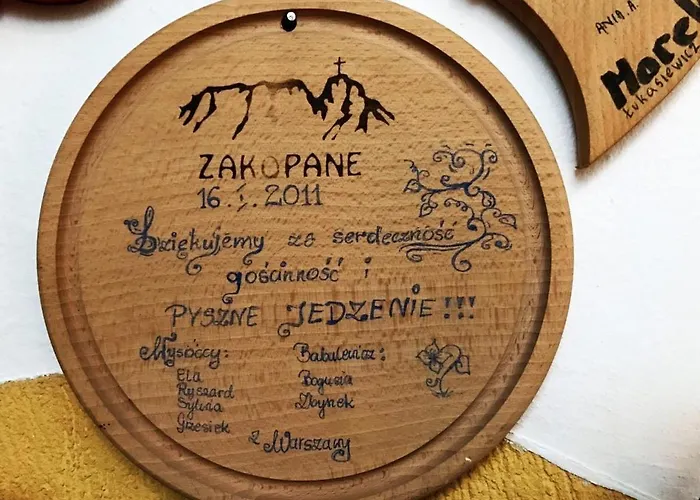 ZAKOPANE
16.I.2011
Dziękujemy za serdeczność
gościnność i
PYSZNE JEDZENIE !!!
Mysoccy:
Ela
Ryszard
Sylwia
Grzesiek
Babulewicz:
Bogusia
Zbynek
z Warszawy
ANIA. A.
Łukasiewicz